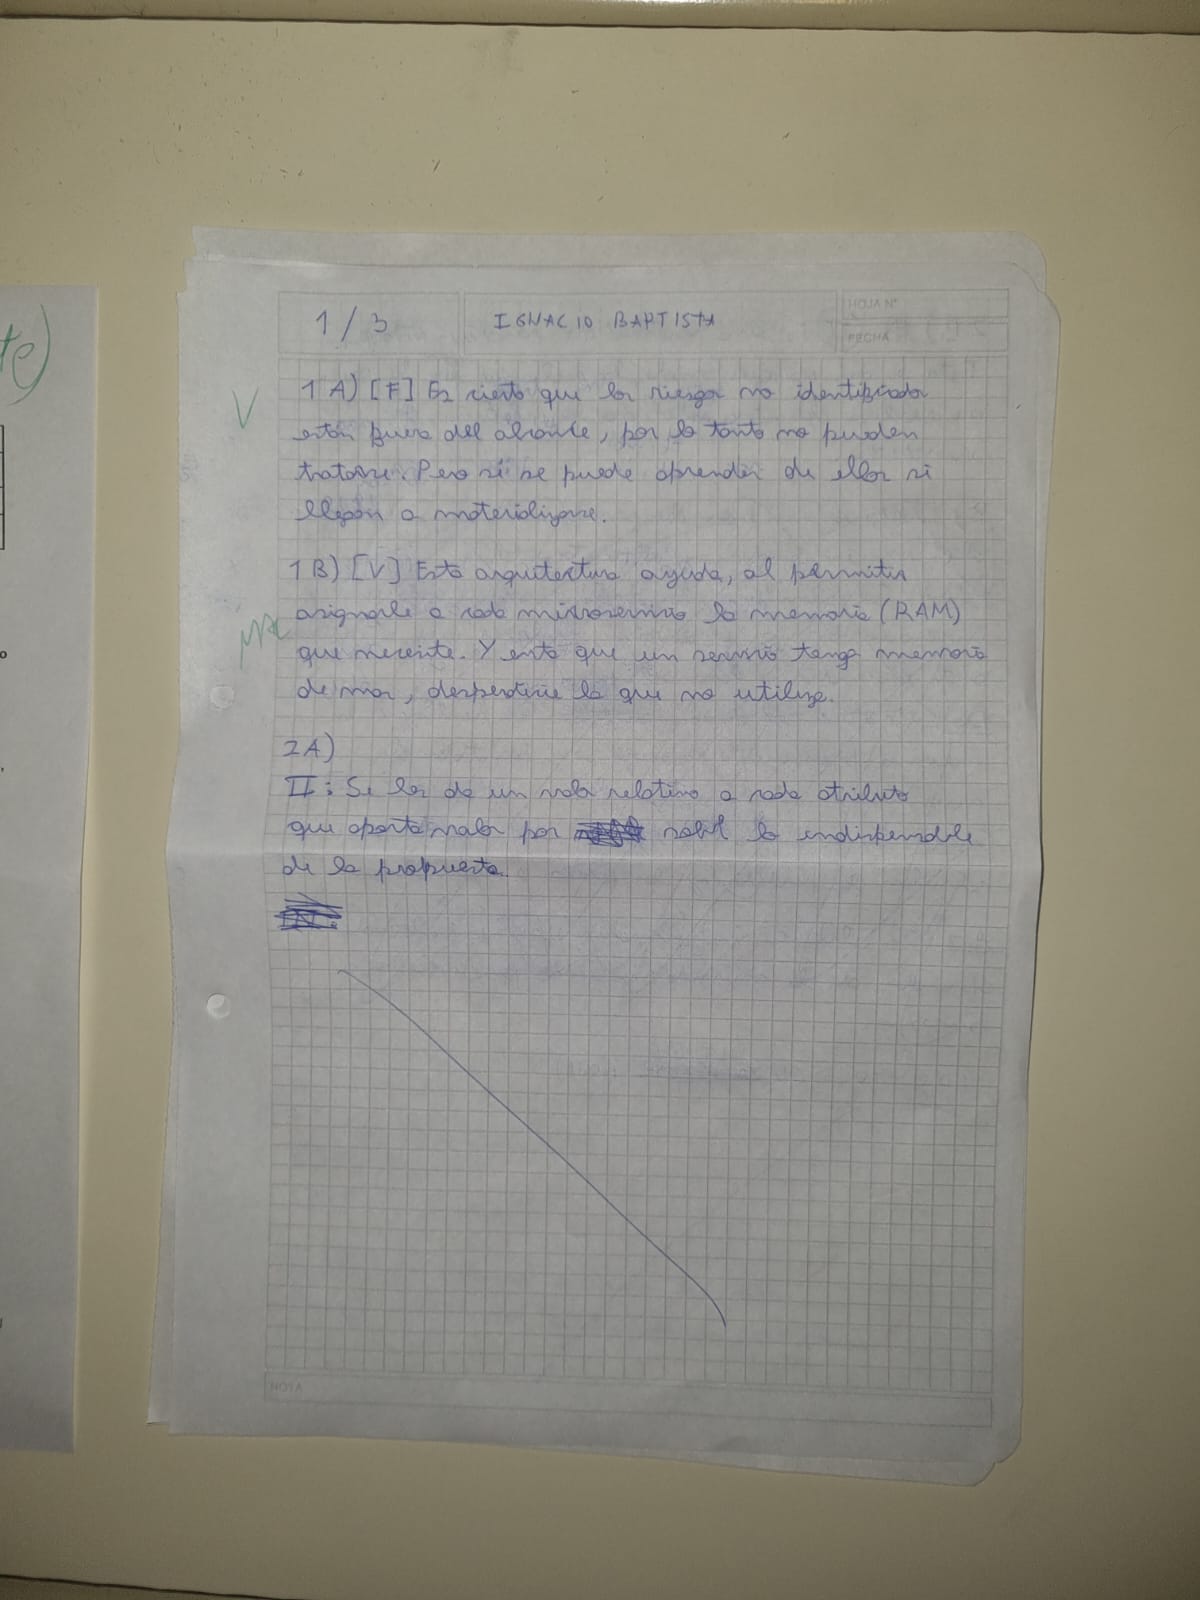 te)
1/3
IGNACIO BAPTISTA
HOJA N°
FECHA
V
1 A) [F] Es cierto que los riesgos no identificados
están fuera del alcance, por lo tanto no pueden
tratarse. Pero sí se puede aprender de ellos si
llegan a materializarse.
1 B) [V] Esta arquitectura ayuda, al permitir
asignarle a cada microservicio la memoria (RAM)
que necesite. Y evita que un servicio tenga memoria
de mas, desperdicie la que no utilize.
2A)
II: Se les da un valor relativo a cada atributo
que aporta valor por sobre lo indispensable
de la propuesta.
NOTA